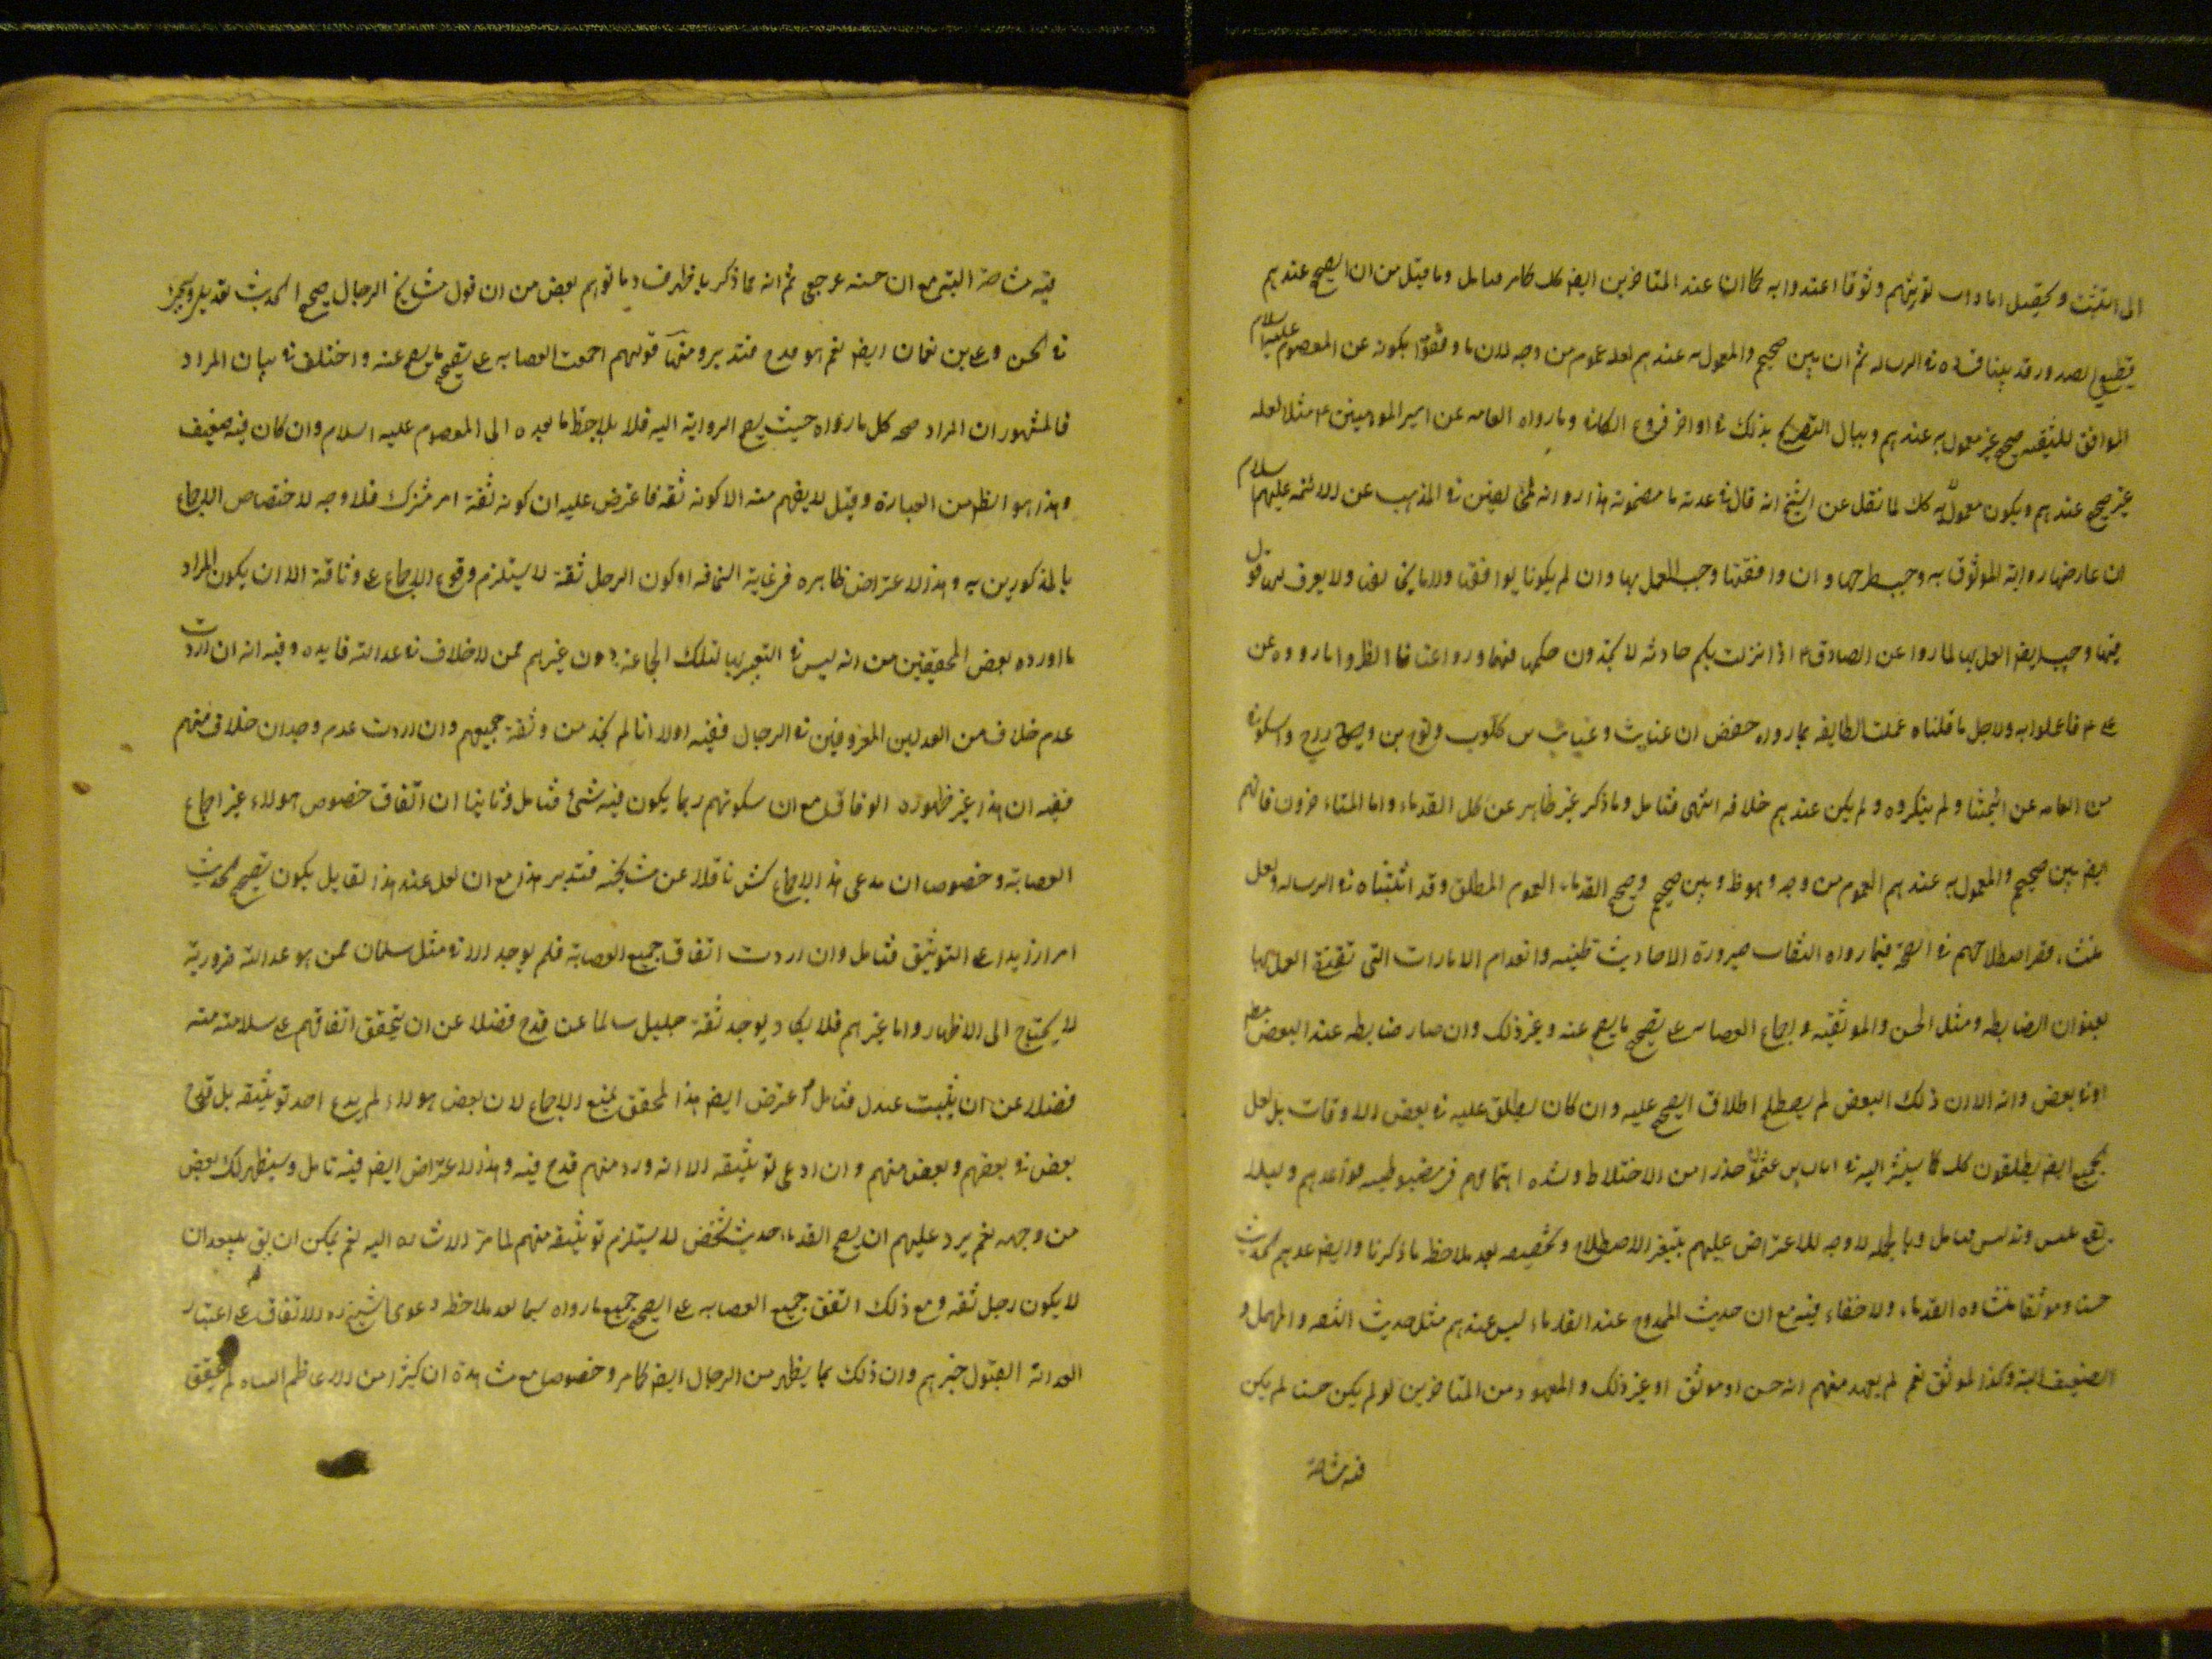 الى التثبت وتحصيل امارات تورثهم وثوقا اعتدوا به كما ان عند المتاخرين ايض كك كما مر فتامل وما قيل من ان الصحيح عندهم
قطعي الصدور قد بينا فساده في الرسالة ثم ان بين صحيحهم والمعمول به عندهم لعله عموم من وجه لان ما وثقوا بكونه عن المعصوم عليه السلام
الموافق للتقية صحيح غير معمول به عندهم وببالي التصريح بذلك في اواخر فروع الكافي وما رواه العامه عن امير المومنين ع مثلا لعله
غير صحيح عندهم ويكون معمولا به كك لما نقل عن الشيخ انه قال في عدته ما مضمونه هذا رواية مخالفين في المذهب عن الائمه عليهم السلام
ان عارضها رواية الموثوق به وجب طرحها وان وافقتها وجب العمل بها وان لم يكن ما يوافقها ولا ما يخالفها ولا يعرف لهم قول
فيها وجب ايض العمل بها لما روا عن الصادق ع اذا نزلت بكم حادثه لا تجدون حكمها فيما ورد اعنا فانظروا الى ما رووه عن
على ع فاعملوا به ولاجل ما قلناه عملت الطايفه بما رواه حفص ابن غياث وغياث بن كلوب ونوح بن دراج والسكوني
من العامه عن ائمتنا ولم ينكروه ولم يكن عندهم خلافه انتهى فتامل وما ذكر غير ظاهر عن كل القدماء واما المتاخرون فانهم
ايض بين صحيحهم والمعمول به عندهم العموم من وجه وهو ظ وبين صحيحهم وصحيح القدماء العموم المطلق وقد اثبتناه في الرساله ولعل
منشاء قصر اصطلاحهم في الصحة فيما رواه الثقات صيرورة الاحاديث ظنيه وانعدام الامارات التي تقتضي العمل بها
بعنوان الضابطه ومثل الحسن والموثقه واجماع العصابه على تصحيح ما يصح عنه وغير ذلك وان صار ضابطه عند البعض مطلقا
او في بعض وانه الا ان ذلك البعض لم يصطلح اطلاق الصحيح عليه وان كان يطلق عليه في بعض الاوقات بل لعل
جميع ايض يطلقون كك كما سيشير اليه في ابان بن عثمان حذرا من الاختلاط ولشده اهتمامهم في مضبوطيه قواعدهم ولئلا
يقع تلبيس وتدليس فتامل وبالجمله لا وجه للاعتراض عليهم بتغيير الاصطلاح وتخصيصه بعد ملاحظه ما ذكرنا وايض عدهم الحديث
حسنا وموثقا منشاوه القدماء ولا خفاء فيه مع ان حديث الممدوح عند القدماء ليس عندهم مثل حديث الثقه والمهمل و
الضعيف البته وكذا الموثق نعم لم يعهد منهم انه حسن او موثق او غير ذلك والمعهود من المتاخرين لو لم يكن حسنا لم يكن
فيه مشاحة
فيه مشاحة البتة مع ان حسنه غير جعي ثم انه مما ذكر يظهر فساد ما توهم بعض من ان قول مشايخ الرجال صحيح الحديث تعديل وسيجئ
في الحسن وعلي بن نعمان ايض نعم هو مدح فتدبر ومنها قولهم اجمعت العصابه على تصحيح ما يصح عنه واختلف في بيان المراد
فالمشهور ان المراد صحه كل ما رواه حيث يصح الرواية اليه فلا يلاحظ ما بعده الى المعصوم عليه السلام وان كان فيه ضعيف
وهذا هو الظ من العبارة وقيل لا يفهم منه الا كونه ثقة فاعترض عليه ان كونه ثقة امر مشترك فلا وجه لاختصاص الاجماع
بالمذكورين به وهذا الاعتراض ظاهره في غاية السخافه اذ كون الرجل ثقة لا يستلزم وقوع الاجماع على وثاقته الا ان يكون المراد
ما اورده بعض المحققين من انه ليس في التعبير بها لتلك الجماعة دون غيرهم ممن لا خلاف في عدالته فايده وفيه انه ان اردت
عدم خلاف من العدلين المعروفين في الرجال ففيه اولا انا لم نجد من وثقة جميعهم وان اردت عدم وجدان خلاف منهم
ففيه ان هذا غير ظهوره الوفاق مع ان سكوتهم ربما يكون فيه شئ فتامل وثانينا ان اتفاق خصوص هولاء غير اجماع
العصابة وخصوصا ان مدعى هذا الاجماع كش ناقلا عن مشايخه فتدبر هذا مع ان لعل عند هذا القايل يكون تصحيح الحديث
امرا زيدا على التوثيق فتامل وان اردت اتفاق جميع العصابة فلم يوجد الا في مثل سلمان ممن هو عدالته ضرورية
لا يحتاج الى الاظهار واما غيرهم فلا يكاد يوجد ثقة جليل سالما عن قدح فضلا عن ان يتحقق اتفاقهم على سلامته منه
فضلا عن ان يثبت عندك فتامل اعترض ايض هذا المحقق بمنع الاجماع لان بعض هولاء لم يدع احد توثيقه بل قدح
بعض في بعضهم وبعض منهم وان ادعى توثيقه الا انه ورد منهم قدح فيه وهذا الاعتراض ايض فيه تامل وسيظهر لك بعض
من وجهه نعم يرد عليهم ان يصح القدماء حديث شخص لا يستلزم توثيقه منهم لما مر الاشاره اليه نعم يمكن ان يق يبعد ان
لا يكون رجل ثقه ومع ذلك اتفق جميع العصابه على الصحيح جميع ما رواه سيما بعد ملاحظه دعوى الشيخ ره الاتفاق على اعتبار
العدالة لقبول خبرهم وان ذلك بما يظهر من الرجال ايض كما مر وخصوصا مع مشاهدة ان كثيرا من الاعاظم لم يتحقق